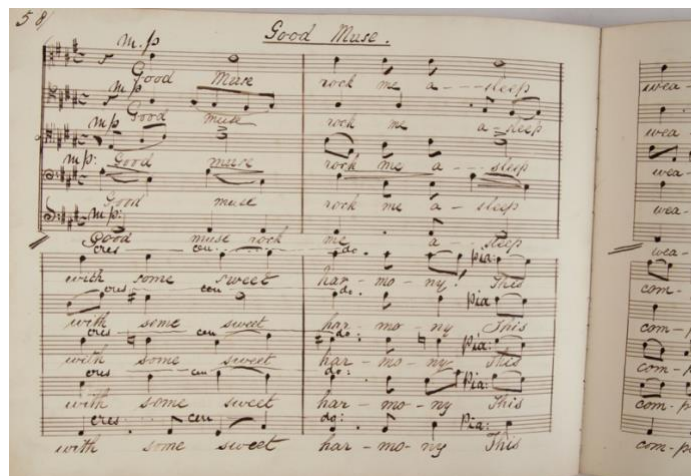 58
Good Muse.
m.p
Good Muse rock me a----sleep
m p
Good muse rock me a-sleep
m p
Good muse rock me a--sleep
m p:
Good muse rock me a--sleep
m p:
Good muse rock me a---sleep
cres cen do. pia:
with some sweet har-mo-ny! This
cres cen do. pia
with some sweet har-mo-ny This
cres cen do: pia:
with some sweet har-mo-ny This
cres cen do: pia:
with some sweet har-mo-ny This
cres cen do: Pia:
with some sweet har-mo-ny This
wea-
wea
wea-
wea-
wea-
com-
com-p
com-p
com-p
com-p